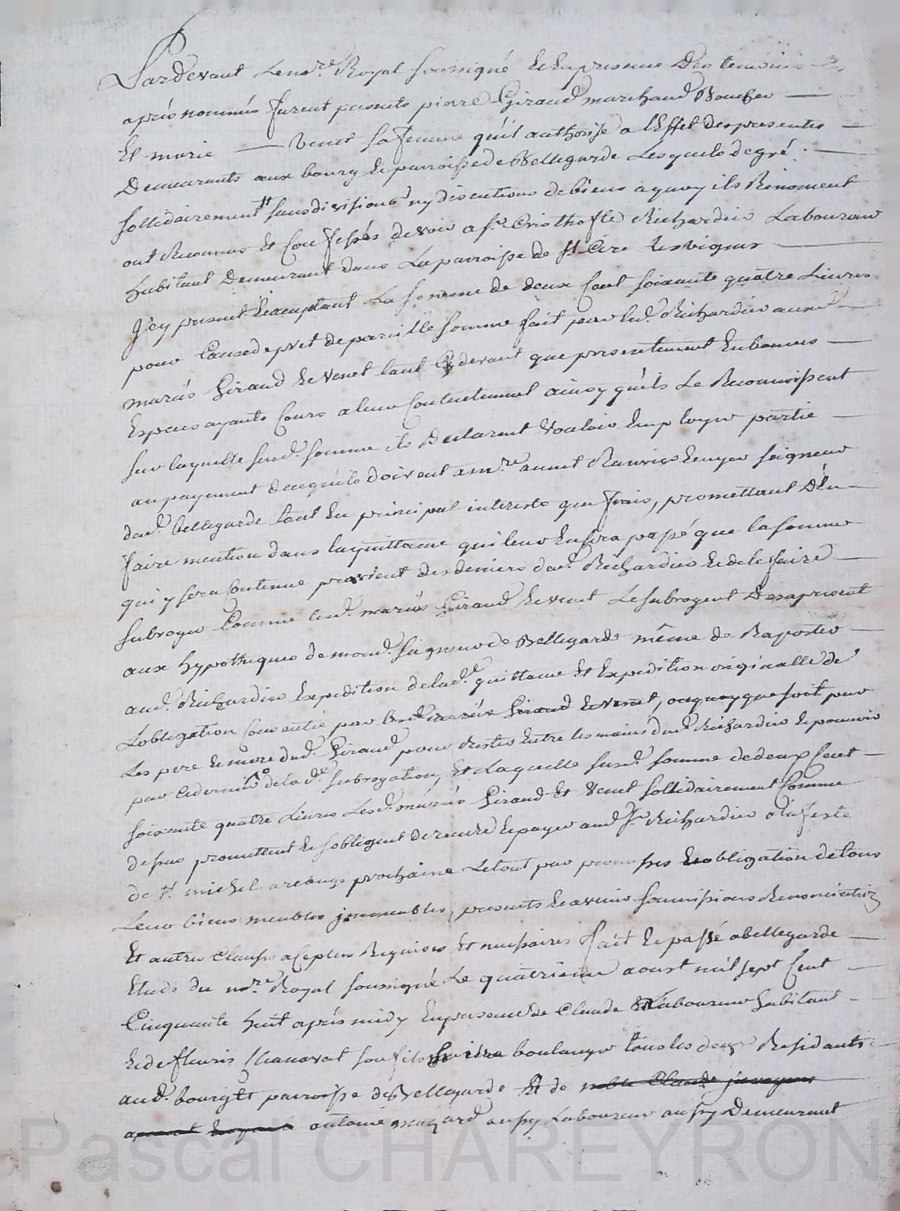 Pardevant le no.re Royal soussigné et en presence des temoins
aprés nommés furent presents pierre Giraud marchand Boucher
Et marie — Venet sa femme qu'il authorise a l'Effet des presentes
Demeurants aux bourg et parroisse de Bellegarde Lesquels de gré
sollidairement sans division ny discution de biens a quoy ils Renoncent
ont Reconnus et Confessés devoir a s.r Cristhofle Richardin Laboureur
habitant Demeurant dans La parroisse de s.t Cire les vignes
Icy present et acceptant La somme de deux Cent soixante quatre Livres
pour Cause de pret de pareille somme fait par led. Richardin auxd.
mariés Giraud et Venet tant Cy devant que presentement En bonnes
Especes ayants Cours a leur Contentement ainsy qu'ils Le Reconnoissent
sur laquelle susd. somme ils Declarent Vouloir Employer partie
au payement de ce qu'ils doivent a m.re annet Ecuyer seigneur
dud. bellegarde tant En principal interests que frais, promettant D'En
faire mention dans la quittance qui leur En sera passé que la somme
qui y sera Contenue provient des deniers dud. Richardin et de le faire
subroger Comme lesd. mariés Giraud et Venet Le subrogent Des a present
aux hypotheques de mond. seigneur de Bellegarde même de Raporter
aud. Richardin Expedition de lad. quittance Et Expedition originalle de
Lobligation Consentie par lesd. mariés Giraud et Venet, ou quoyque soit par
Les pere et mere dud. Giraud pour Rester Entre les mains dud. Richardin et pouvoir
par ce dernier de lad. subrogation, Et Laquelle susd. somme de deux Cent
soixante quatre Livres Lesd. mariés Giraud Et Venet sollidairement Comme
dessus promettent et s'obligent de rendre et payer aud. s.r Richardin a la feste
de s.t michel arcange prochaine Le tout par promesses et obligation de tous
Leurs biens meubles immeubles, presents et avenir soumissions Renonciations
Et autres Clauses a ce plus Requises Et necessaires fait et passé a bellegarde
Etude du no.re Royal soussigné Le quatrieme aoust mil sept Cent
Cinquante huit aprés midy En presence de Claude Laboureur habitant
et de fleuris Chanavat son fils boulanger tous les deux Residants
aud. bourg et parroisse de Bellegarde Et de
antoine mazard aussy Laboureur aussy Demeurant
Pascal CHAREYRON